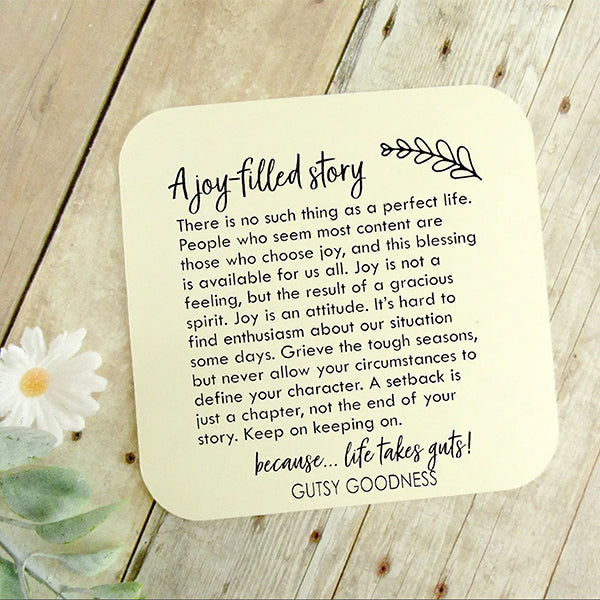 A joy-filled story
There is no such thing as a perfect life.
People who seem most content are
those who choose joy, and this blessing
is available for us all. Joy is not a
feeling, but the result of a gracious
spirit. Joy is an attitude. It's hard to
find enthusiasm about our situation
some days. Grieve the tough seasons,
but never allow your circumstances to
define your character. A setback is
just a chapter, not the end of your
story. Keep on keeping on.
because... life takes guts!
GUTSY GOODNESS